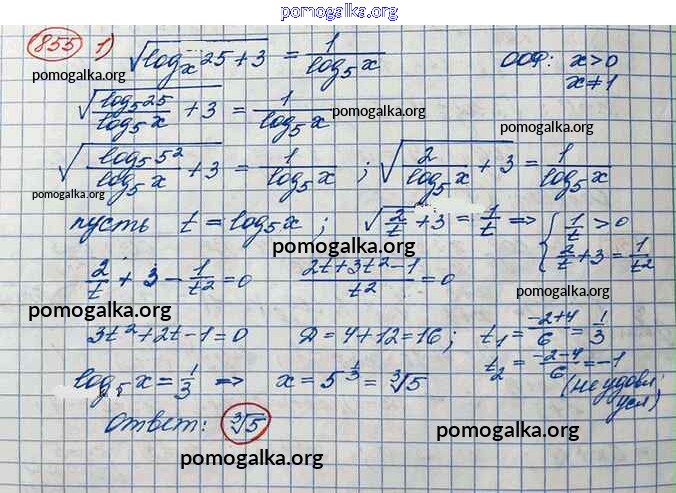 pomogalka.org
855 1) √(log_x 25 + 3) = 1/(log_5 x) ООФ: x > 0
pomogalka.org x ≠ 1
√(log_5 25/(log_5 x) + 3) = 1/(log_5 x) pomogalka.org
pomogalka.org
√(log_5 5²/(log_5 x) + 3) = 1/(log_5 x) ; √(2/(log_5 x) + 3) = 1/(log_5 x)
pomogalka.org
пусть t = log_5 x ; √(2/t + 3) = 1/t => { 1/t > 0
pomogalka.org
2/t + 3 - 1/t² = 0 (2t + 3t² - 1)/t² = 0 2/t + 3 = 1/t²
pomogalka.org
pomogalka.org
3t² + 2t - 1 = 0 Д = 4 + 12 = 16 ; t_1 = (-2+4)/6 = 1/3
t_2 = (-2-4)/6 = -1
log_5 x = 1/3 => x = 5^(1/3) = ∛5 (не удовл.
усл)
Ответ: ∛5
pomogalka.org
pomogalka.org